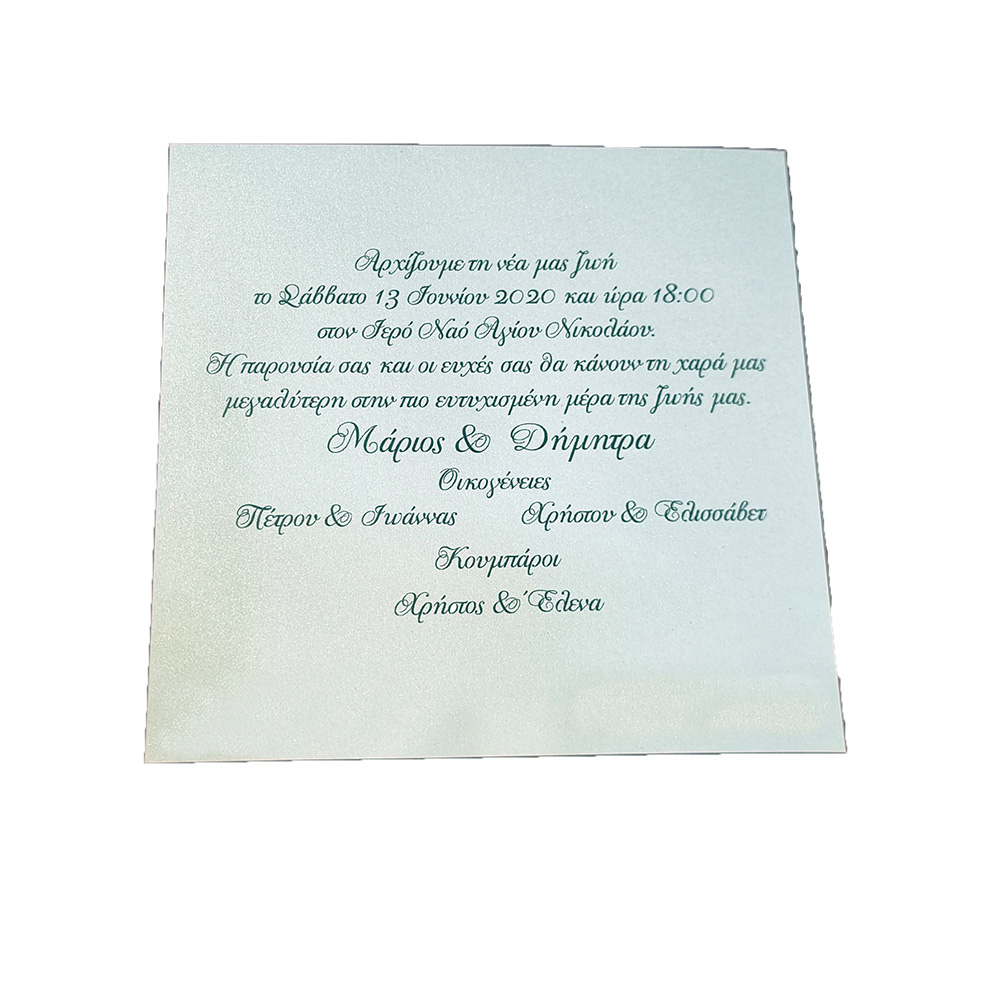 Αρχίζουμε τη νέα μας ζωή
το Σάββατο 13 Ιουνίου 2020 και ώρα 18:00
στον Ιερό Ναό Αγίου Νικολάου.
Η παρουσία σας και οι ευχές σας θα κάνουν τη χαρά μας
μεγαλύτερη στην πιο ευτυχισμένη μέρα της ζωής μας.
Μάριος & Δήμητρα
Οικογένειες
Πέτρου & Ιωάννας Χρήστου & Ελισσάβετ
Κουμπάροι
Χρήστος & Έλενα